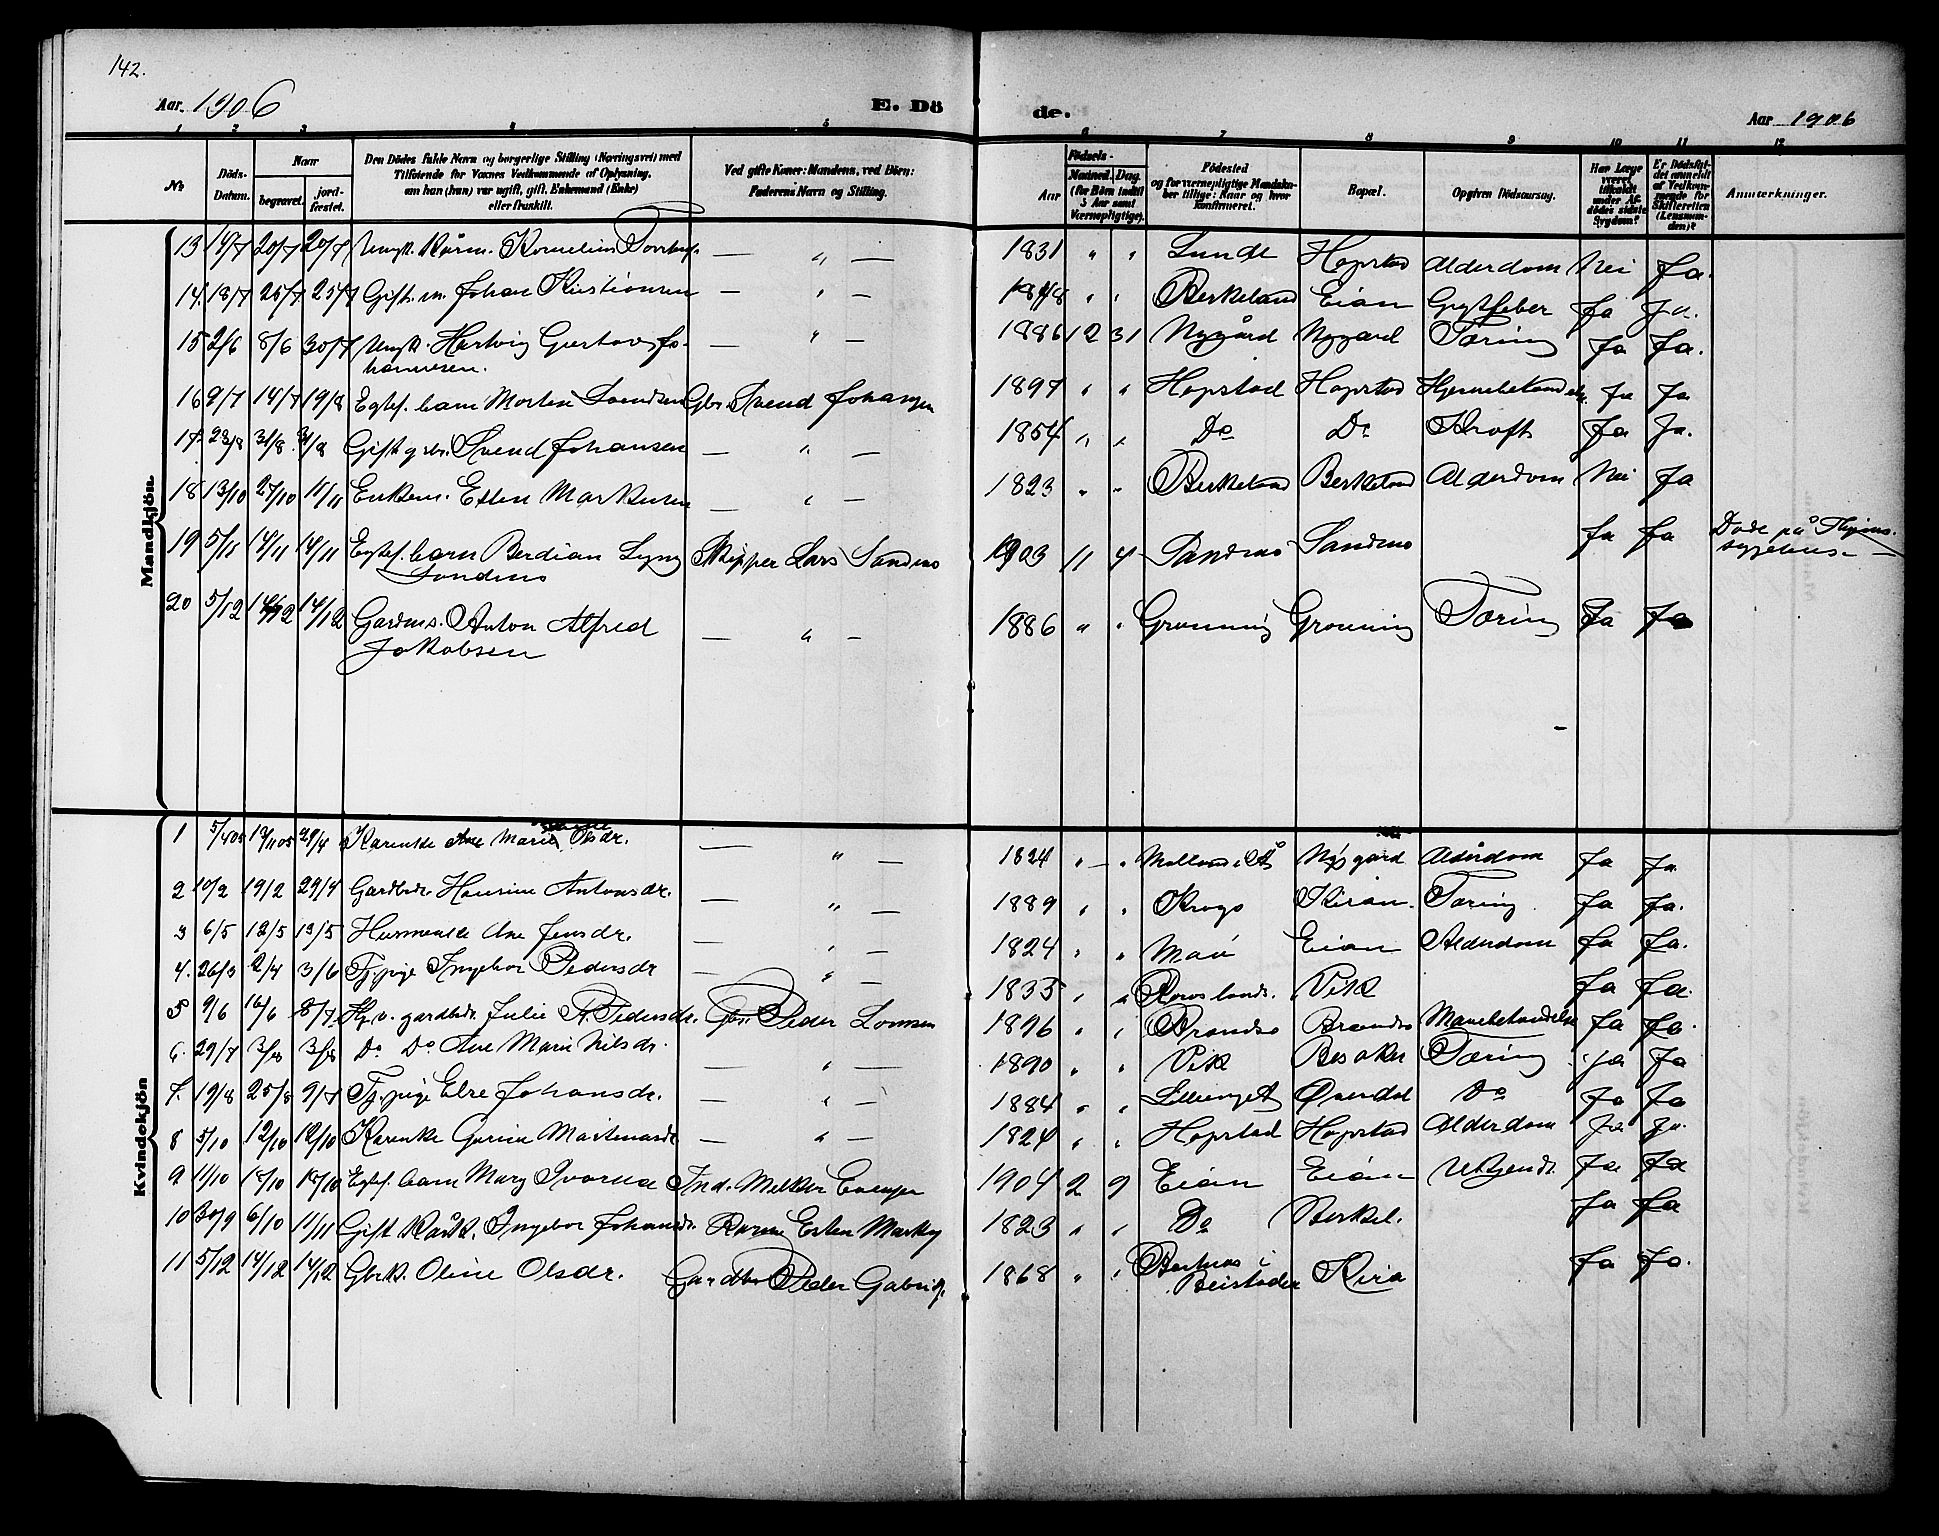 142.
Aar. 1906 E. Dö de. Aar 1906
1 2 3 4 5 6 7 8 9 10 11 12
No
Döds-Datum.
Naar begravet. jordfæstet.
Den Dödes fulde Navn og borgerlige Stilling (Næringsvei) med Tilföiende for Voxnes Vedkommende af Oplysning, om han (hun) var ugift, gift, Enkemand (Enke) eller fraskilt.
Ved gifte Koner: Mandens, ved Börn: Faderens Navn og Stilling.
Födsels- Aar Maaned. Dag. (for Börn indtil 5 Aar samt Værnepligtige).
Födested og for værnepligtige Mandskaber tillige: Naar og hvor konfirmeret.
Bopæl.
Opgiven Dödsaarsag.
Har Læge været tilkaldt under Afdödes sidste Sygdom?
Er Dödsfaldet anmeldt af Vedkommende for Skifteretten (Lensmanden)?
Anmærkninger.
Mandkjön.
13 14/7 20/7 20/7 Ungk. Kårm. Kornelius — " — 1831 " " Lunde Hopstad Alderdom Nei Ja.
14. 18/7 25/7 25/7 Gift. m. Johan Kristiansen — " — 1848 " " Berkeland Eian Gigtfeber Ja Ja.
15 2/6 8/6 30/7 Ungk. Hartvig Gustav Jo- — " — 1886 12 31 Nygård Nygard Tæring Ja Ja.
hannesen.
16 9/7 14/7 19/8 Egtef. barn Morten Svendsen Gbr. Svend Johansen 1897 " " Hopstad Hopstad Ja Ja
17 23/8 31/8 31/8 Gift gbr. Svend Johansen — " — 1854 " " Do Do Kræft Ja Ja.
18 13/10 27/10 11/11 Enkem. Esten Markusen — " — 1823 " " Berkeland Berkeland Alderdom Nei Ja
19 5/11 14/11 14/11 Egtef. barn Berdian Lyng Skipper Lars Sandmo 1903 11 4 Sandmo Sandmo Ja Ja Døde på
Sandmo
20 5/12 14/12 14/12 Gardms. Anton Alfred — " — 1886 " " Grønning Grønning Tæring Ja Ja
Jakobsen
Kvindekjön
1 5/4 05 29/4 Karenke Ane Marie Olsdr. — " — 1824 " " Nygard Alderdom Ja Ja
2 10/2 19/2 29/4 Gardbdr. Haurine Antonsdr. — " — 1889 " " Krogs Kiran. Tæring Ja Ja.
3 6/5 12/5 13/5 Husmenke Ane Jensdr. — " — 1824 " " Eian Alderdom Ja Ja.
4. 26/3 2/4 3/6 Tj. pige Ingebor Pedersdr — " — 1833 " " Vik Ja Ja.
5 9/6 16/6 8/7 gardbdr. Julie P. Pedersdr. Gbr. Peder Lornsen 1896 " " Brandsø Brandsø Mavebetændelse Ja Ja.
6. 29/7 3/8 3/8 Do Do Ane Marie Nilsdr. — " — 1890 " " Vik Besaker Tæring Ja Ja
7. 19/8 25/8 9/7 Tj. pige Else Johansdr. — " — 1884 " " Do Ja Ja
8 5/10 12/10 12/10 Karenke Gurine Martinusdr — " — 1824 " " Hopstad Hopstad Alderdom Ja Ja.
9 11/10 17/10 17/10 Egtef. barn Mary Ivarna Ind. Melkior Evensen 1904 2 9 Eian Eian Ukjendt Ja Ja
10 30/9 6/10 11/11 Gift Kårk. Ingebor Johansdr. Esten Markus 1823 " " Do Berkel. Ja Ja
11 5/12 14/12 14/12 Gbrk. Oline Olsdr. Gardbr Peder Gabriels. 1868 " " i Kira Ja Ja.
Beistaden